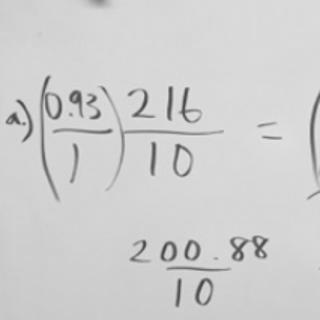 a.) (0.93/1) 216/10 = (
200.88/10